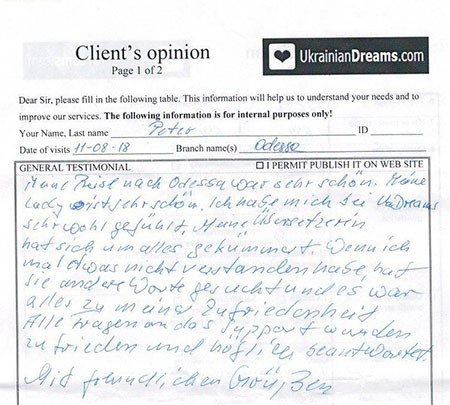 Client's opinion
Page 1 of 2
UkrainianDreams.com
Dear Sir, please fill in the following table. This information will help us to understand your needs and to
improve our services. The following information is for internal purposes only!
Your Name, Last name Peter ID
Date of visits 11-08-18 Branch name(s) Odessa
GENERAL TESTIMONIAL I PERMIT PUBLISH IT ON WEB SITE
Meine Reise nach Odessa war sehr schön. Meine
Lady ist sehr schön. Ich habe mich bei UaDreams
sehr wohl gefühlt. Meine Übersetzerin
hat sich um alles gekümmert. Wenn ich
mal etwas nicht verstanden habe, hat
sie andere Worte gesucht und es war
alles zu meiner Zufriedenheit
Alle Fragen an das Support wurden
zufrieden und höflich beantwortet.
Mit freundlichen Grüßen